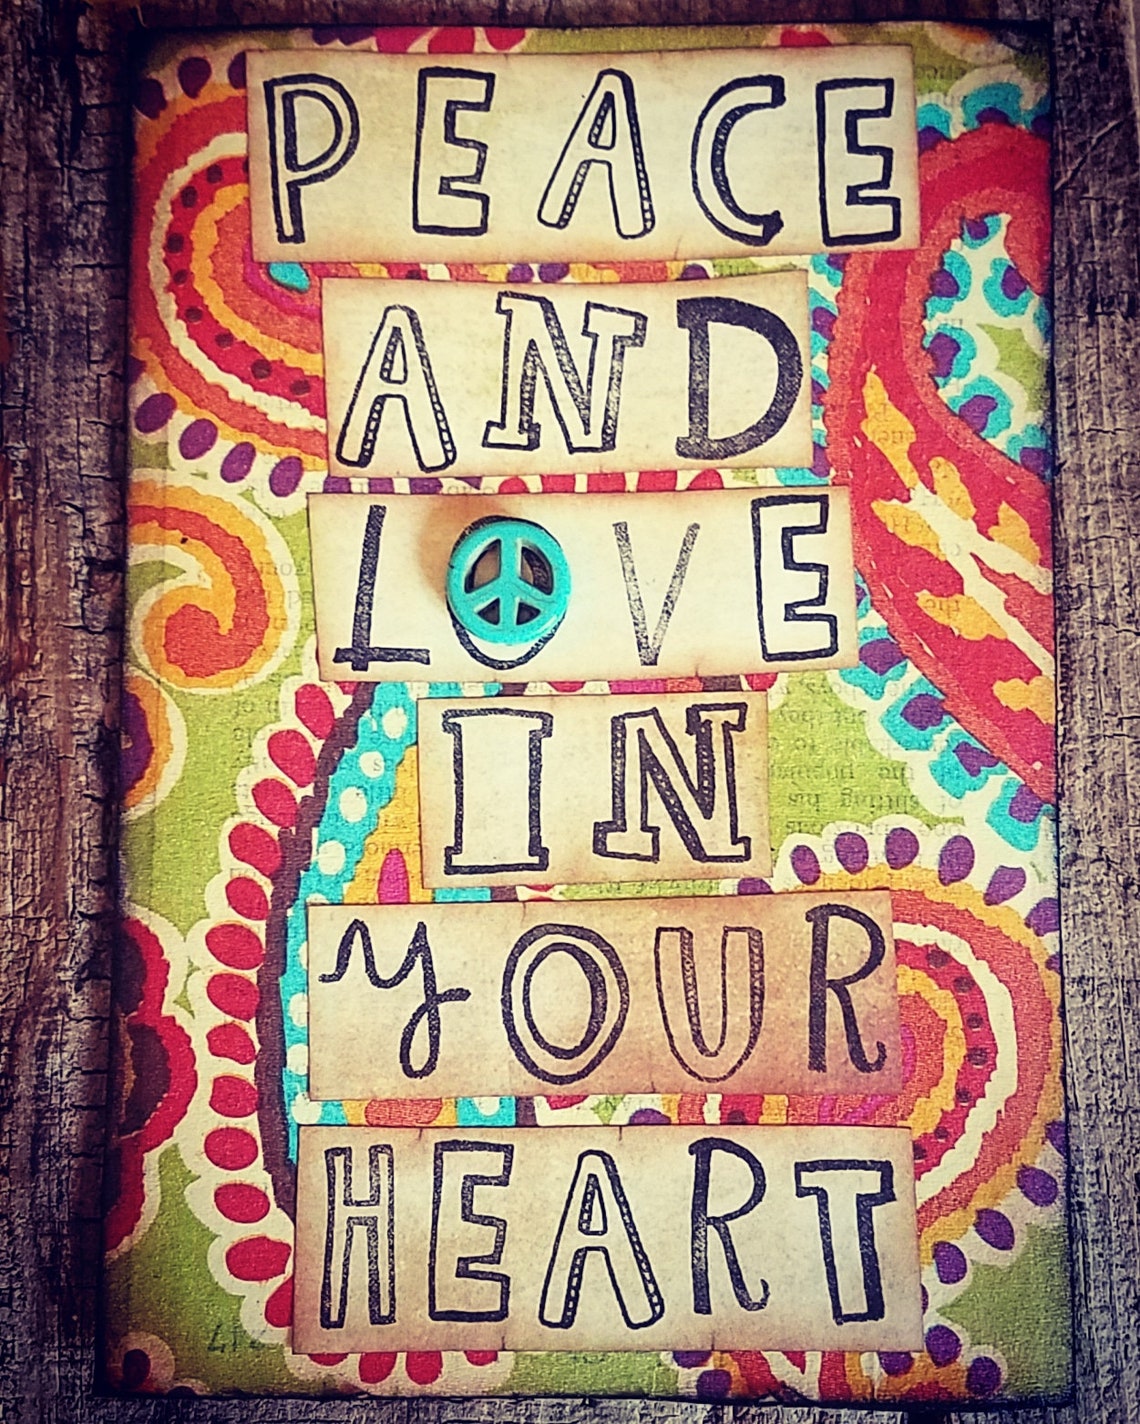 PEACE
AND
LOVE
IN
YOUR
HEART
217